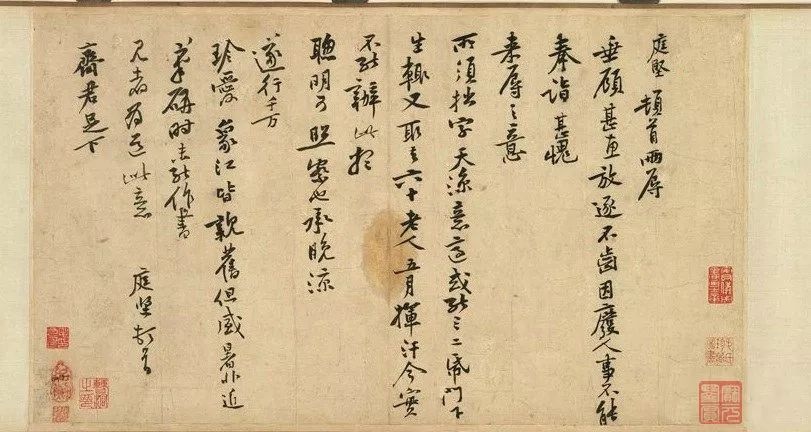 庭堅頓首兩辱
垂顧甚惠放逐不齒因廢人事不能
奉詣甚愧
來辱之意
所須拙字天涼意適或能三二紙門下
生輒又取去六十老人五月揮汗今實
不能辦此想
聰明可照察也承晚涼
遂行千万
珍愛象江皆親舊但盛暑非近
筆硯時未能作書
見者爲道此意 庭堅頓首
齋君足下